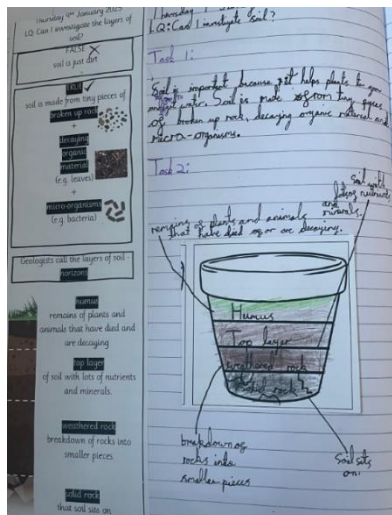 Thursday 9th January 2025
LQ: Can I investigate the layers of
soil?
FALSE
soil is just dirt
TRUE
soil is made from tiny pieces of
broken up rock
+
decaying
organic
material
(e.g. leaves)
+
micro-organisms
(e.g. bacteria)
Geologists call the layers of soil -
horizons
humus
remains of plants and
animals that have died and
are decaying
top layer
of soil with lots of nutrients
and minerals.
weathered rock
breakdown of rocks into
smaller pieces
solid rock
that soil sits on
LQ: Can I investigate soil?
Task 1:
Soil is important because it helps plants to
water. Soil is made from tiny
of broken up rock, decaying organic material and
micro-organisms.
Task 2:
Soil with
lots of nutrients
and
minerals.
remains of plants and animals
that have died or are decaying.
Humus
Top layer
weathered rock
solid rock
breakdown of
rocks into
smaller pieces
Soil sits
on